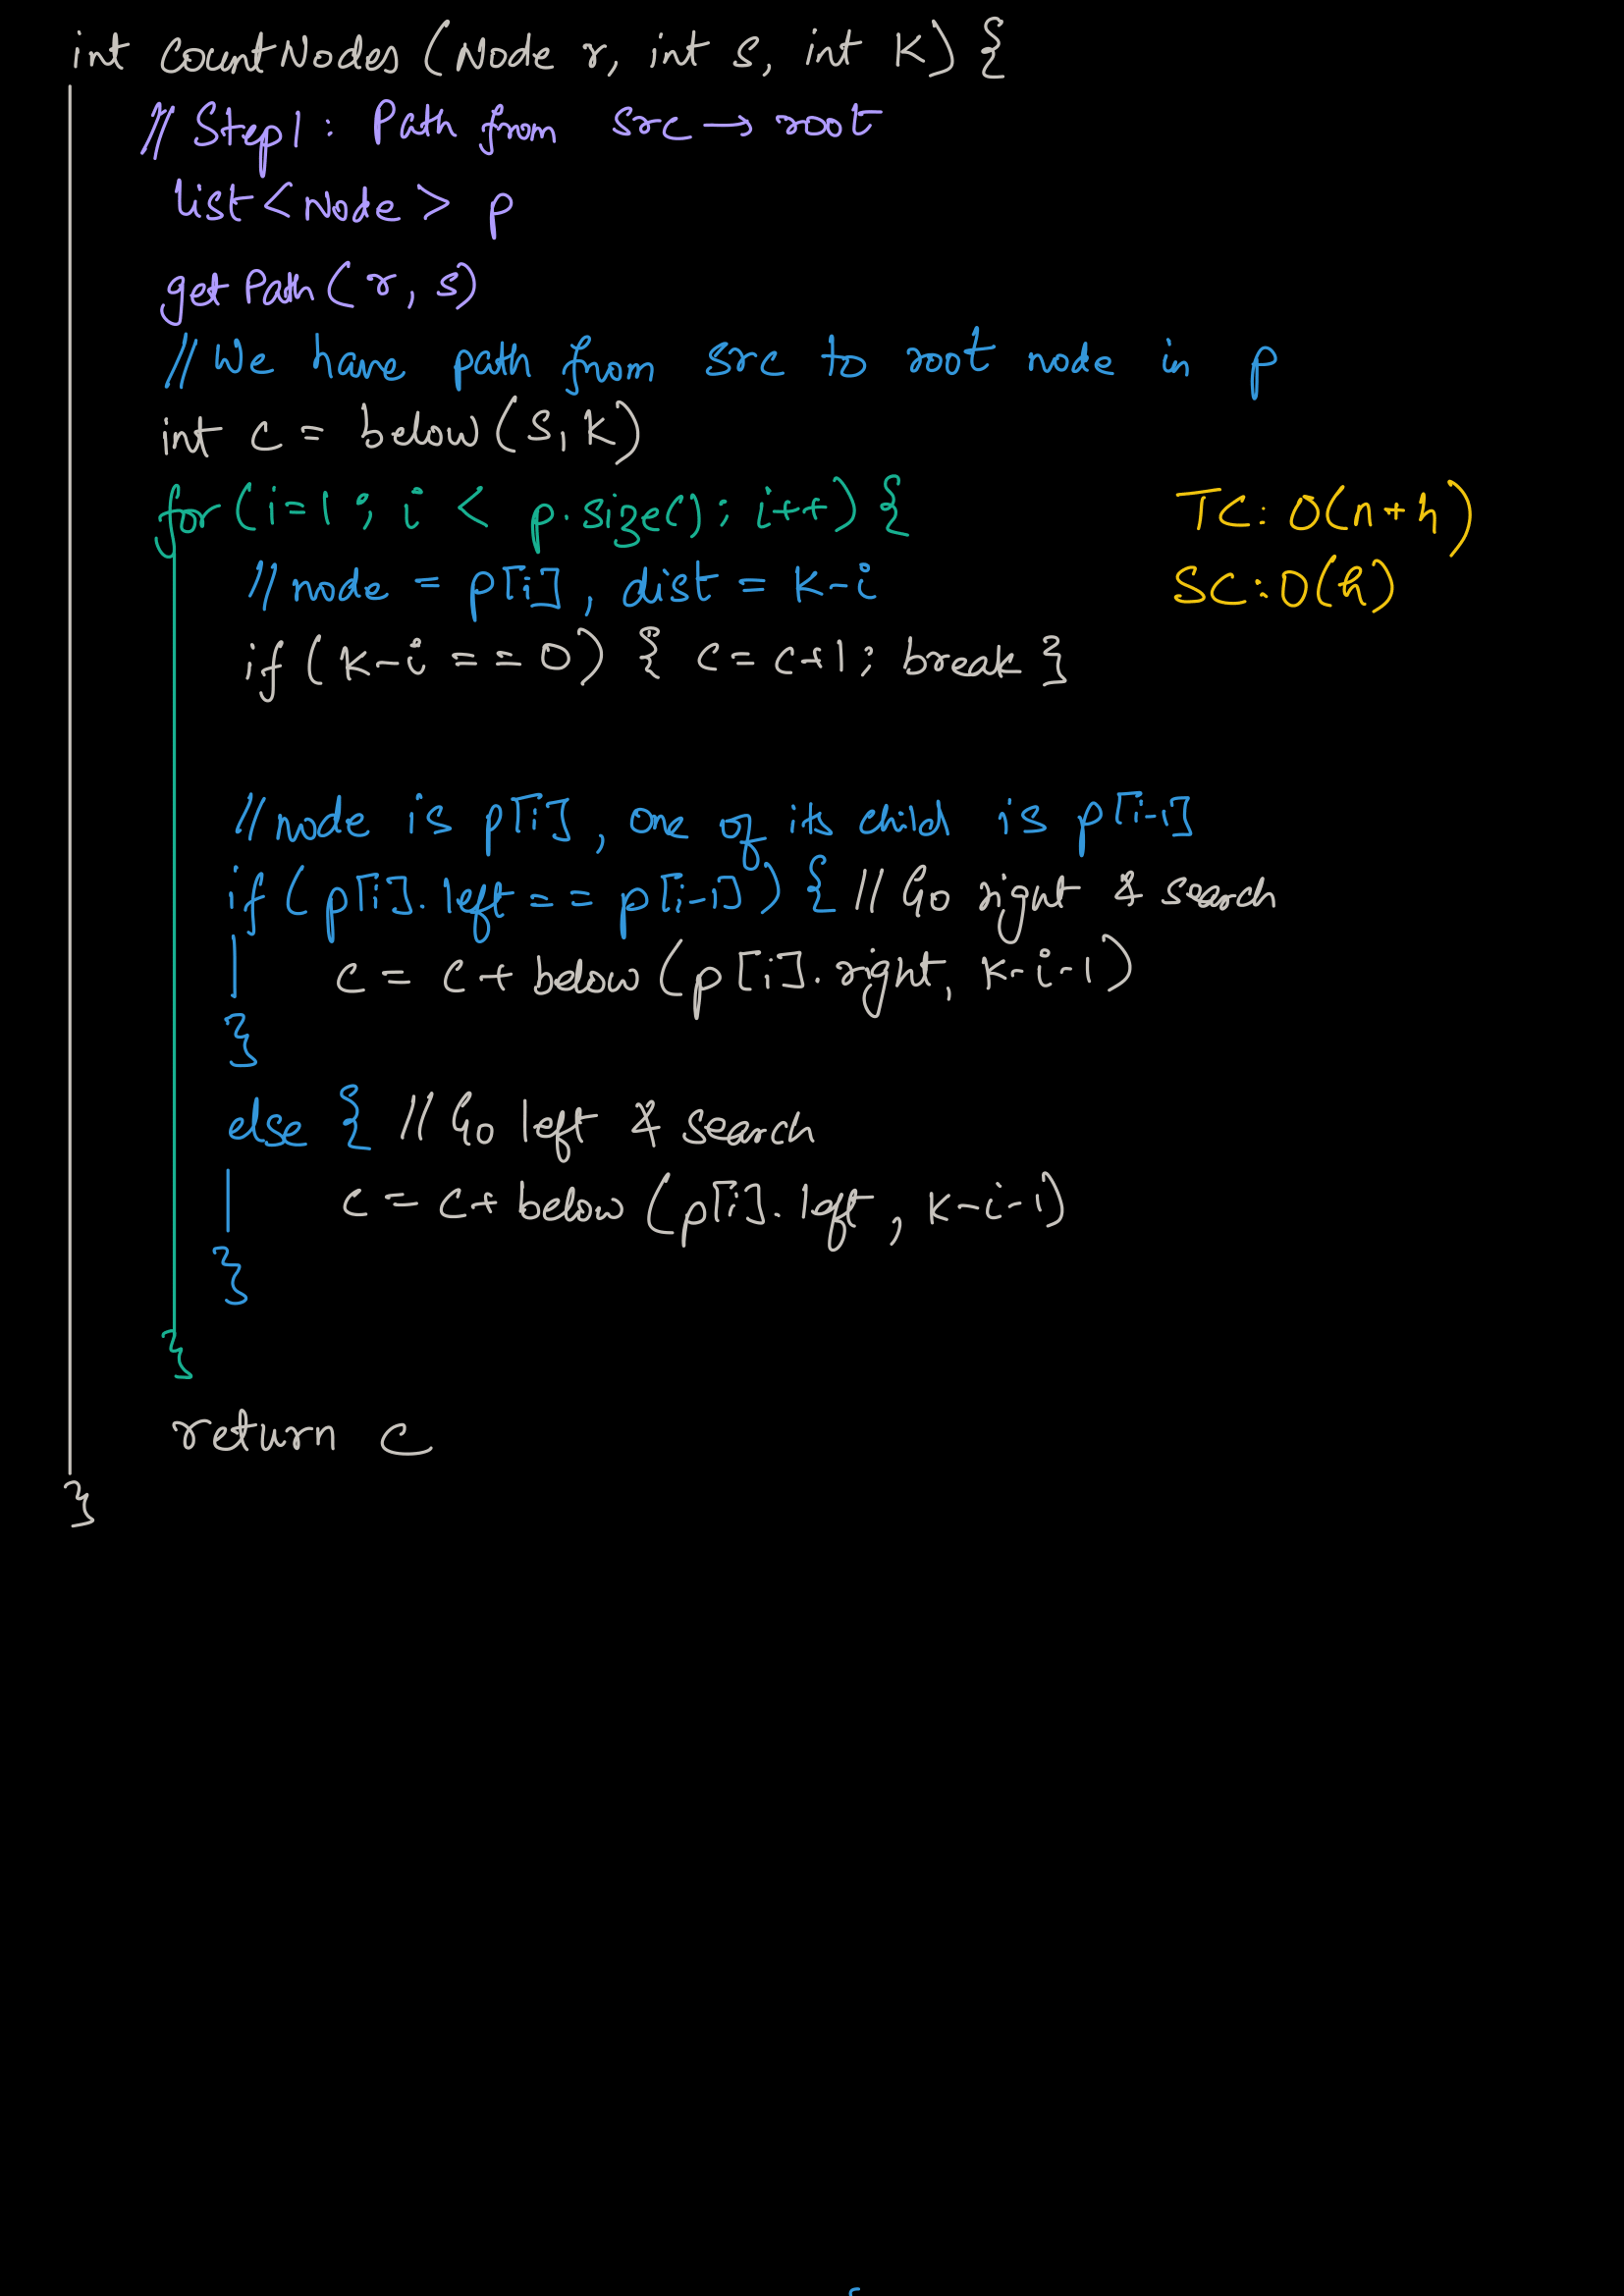 int countNodes (Node r, int s, int K) {
// Step1 : Path from src → root
list<Node> p
getPath(r, s)
// We have path from src to root node in p
int c = below(s, k)
for (i=1 ; i < p.size() ; i++) {
TC: O(n+h)
// node = p[i], dist = k-i
SC: O(h)
if (k-i == 0) { c = c+1; break }
// node is p[i], one of its child is p[i-1]
if (p[i].left == p[i-1]) { // Go right & search
c = c + below (p[i].right, k-i-1)
}
else { // Go left & search
c = c + below (p[i].left, k-i-1)
}
}
return c
}